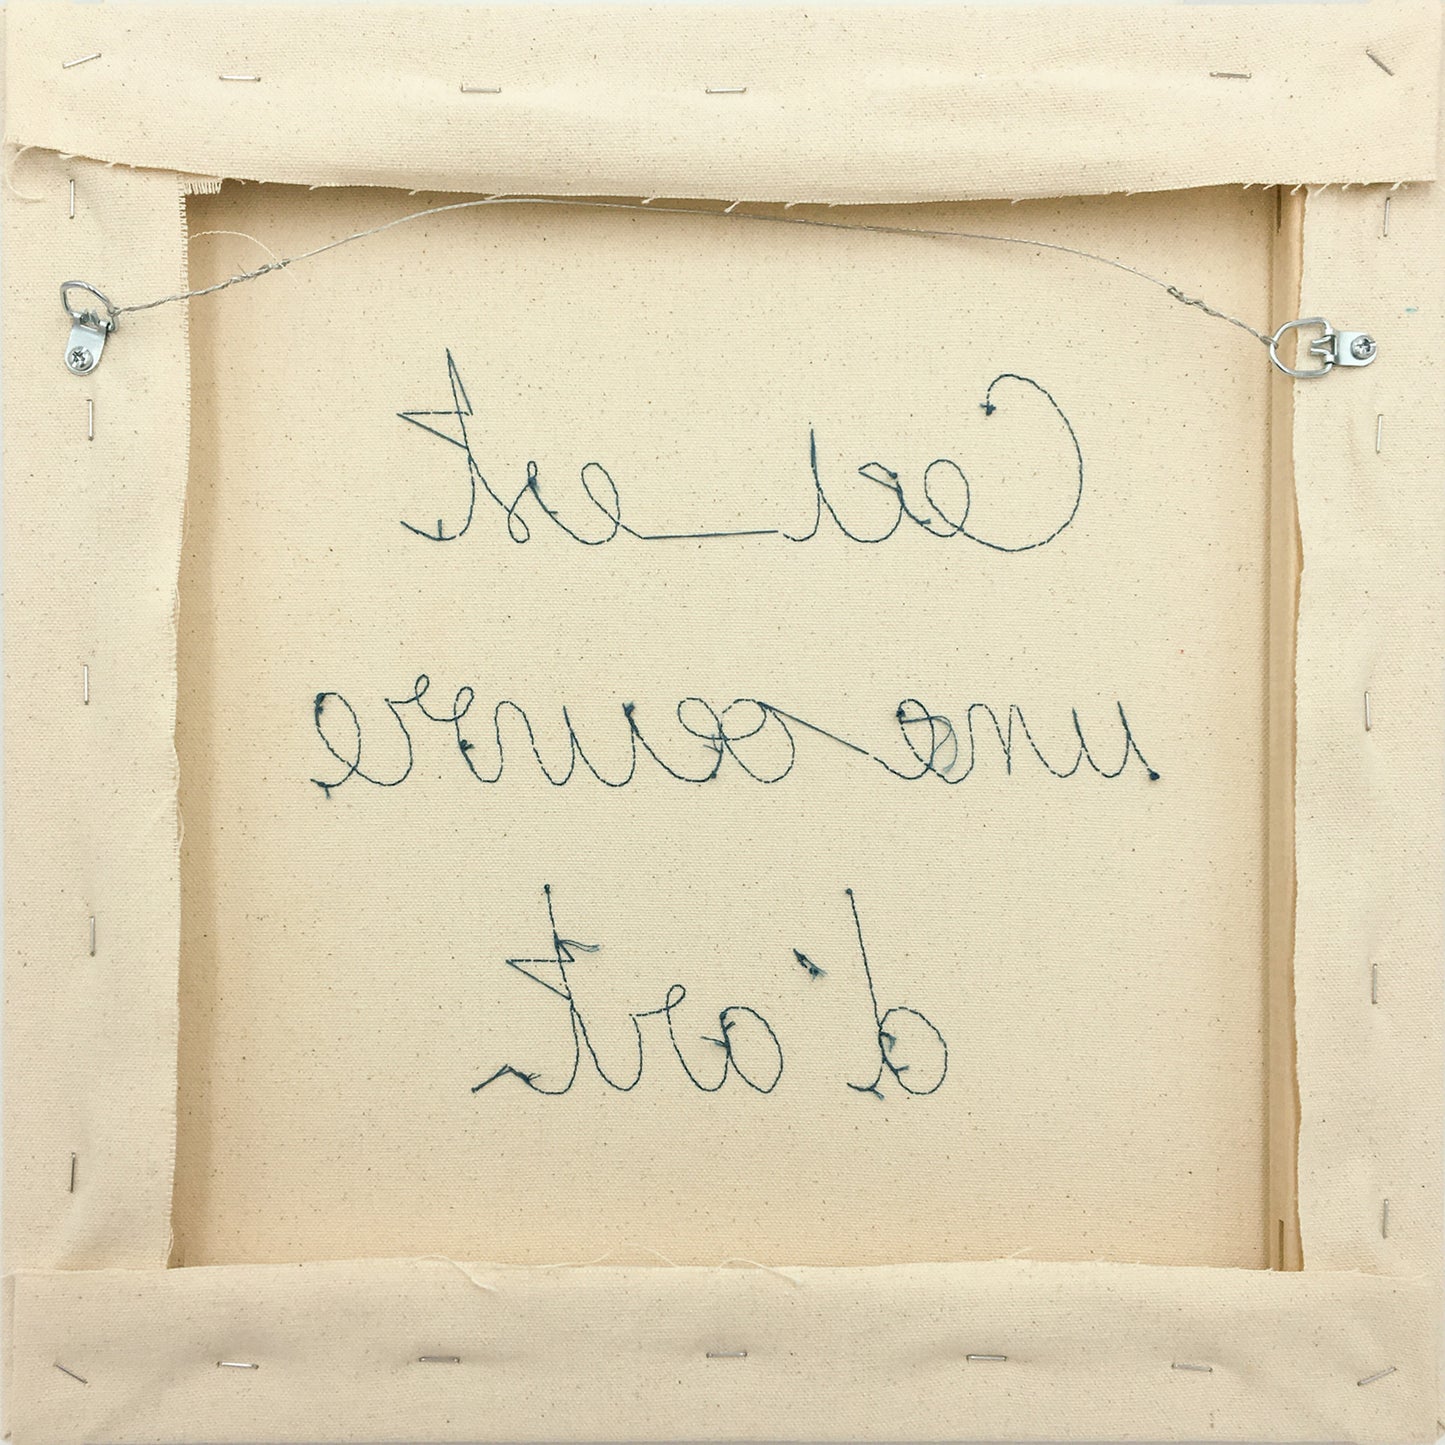 Ceci est
une oeuvre
d'art